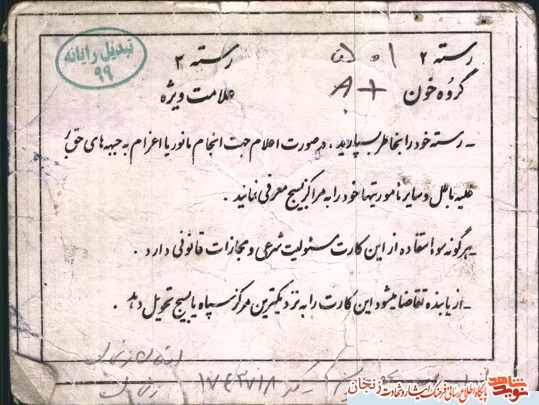 تبدیل رایانه
۹۹
رسته ۲
رسته ۳
گروه خون A+
علامت ویژه
- رسته خود را بخاطر بسپارید، در صورت اعلام جهت انجام مانور یا اعزام به جبهه های حق
علیه باطل و سایر مأموریتها خود را به مراکز بسیج معرفی نمائید.
- هرگونه سوء استفاده از این کارت مسئولیت شرعی و مجازات قانونی دارد.
- از یابنده تقاضا میشود این کارت را به نزدیکترین مرکز سپاه یا بسیج تحویل دهد.
۱۷۴۲۷۱۸
نوید شاهد
پایگاه اطلاع رسانی فرهنگ ایثار و شهادت زنجان